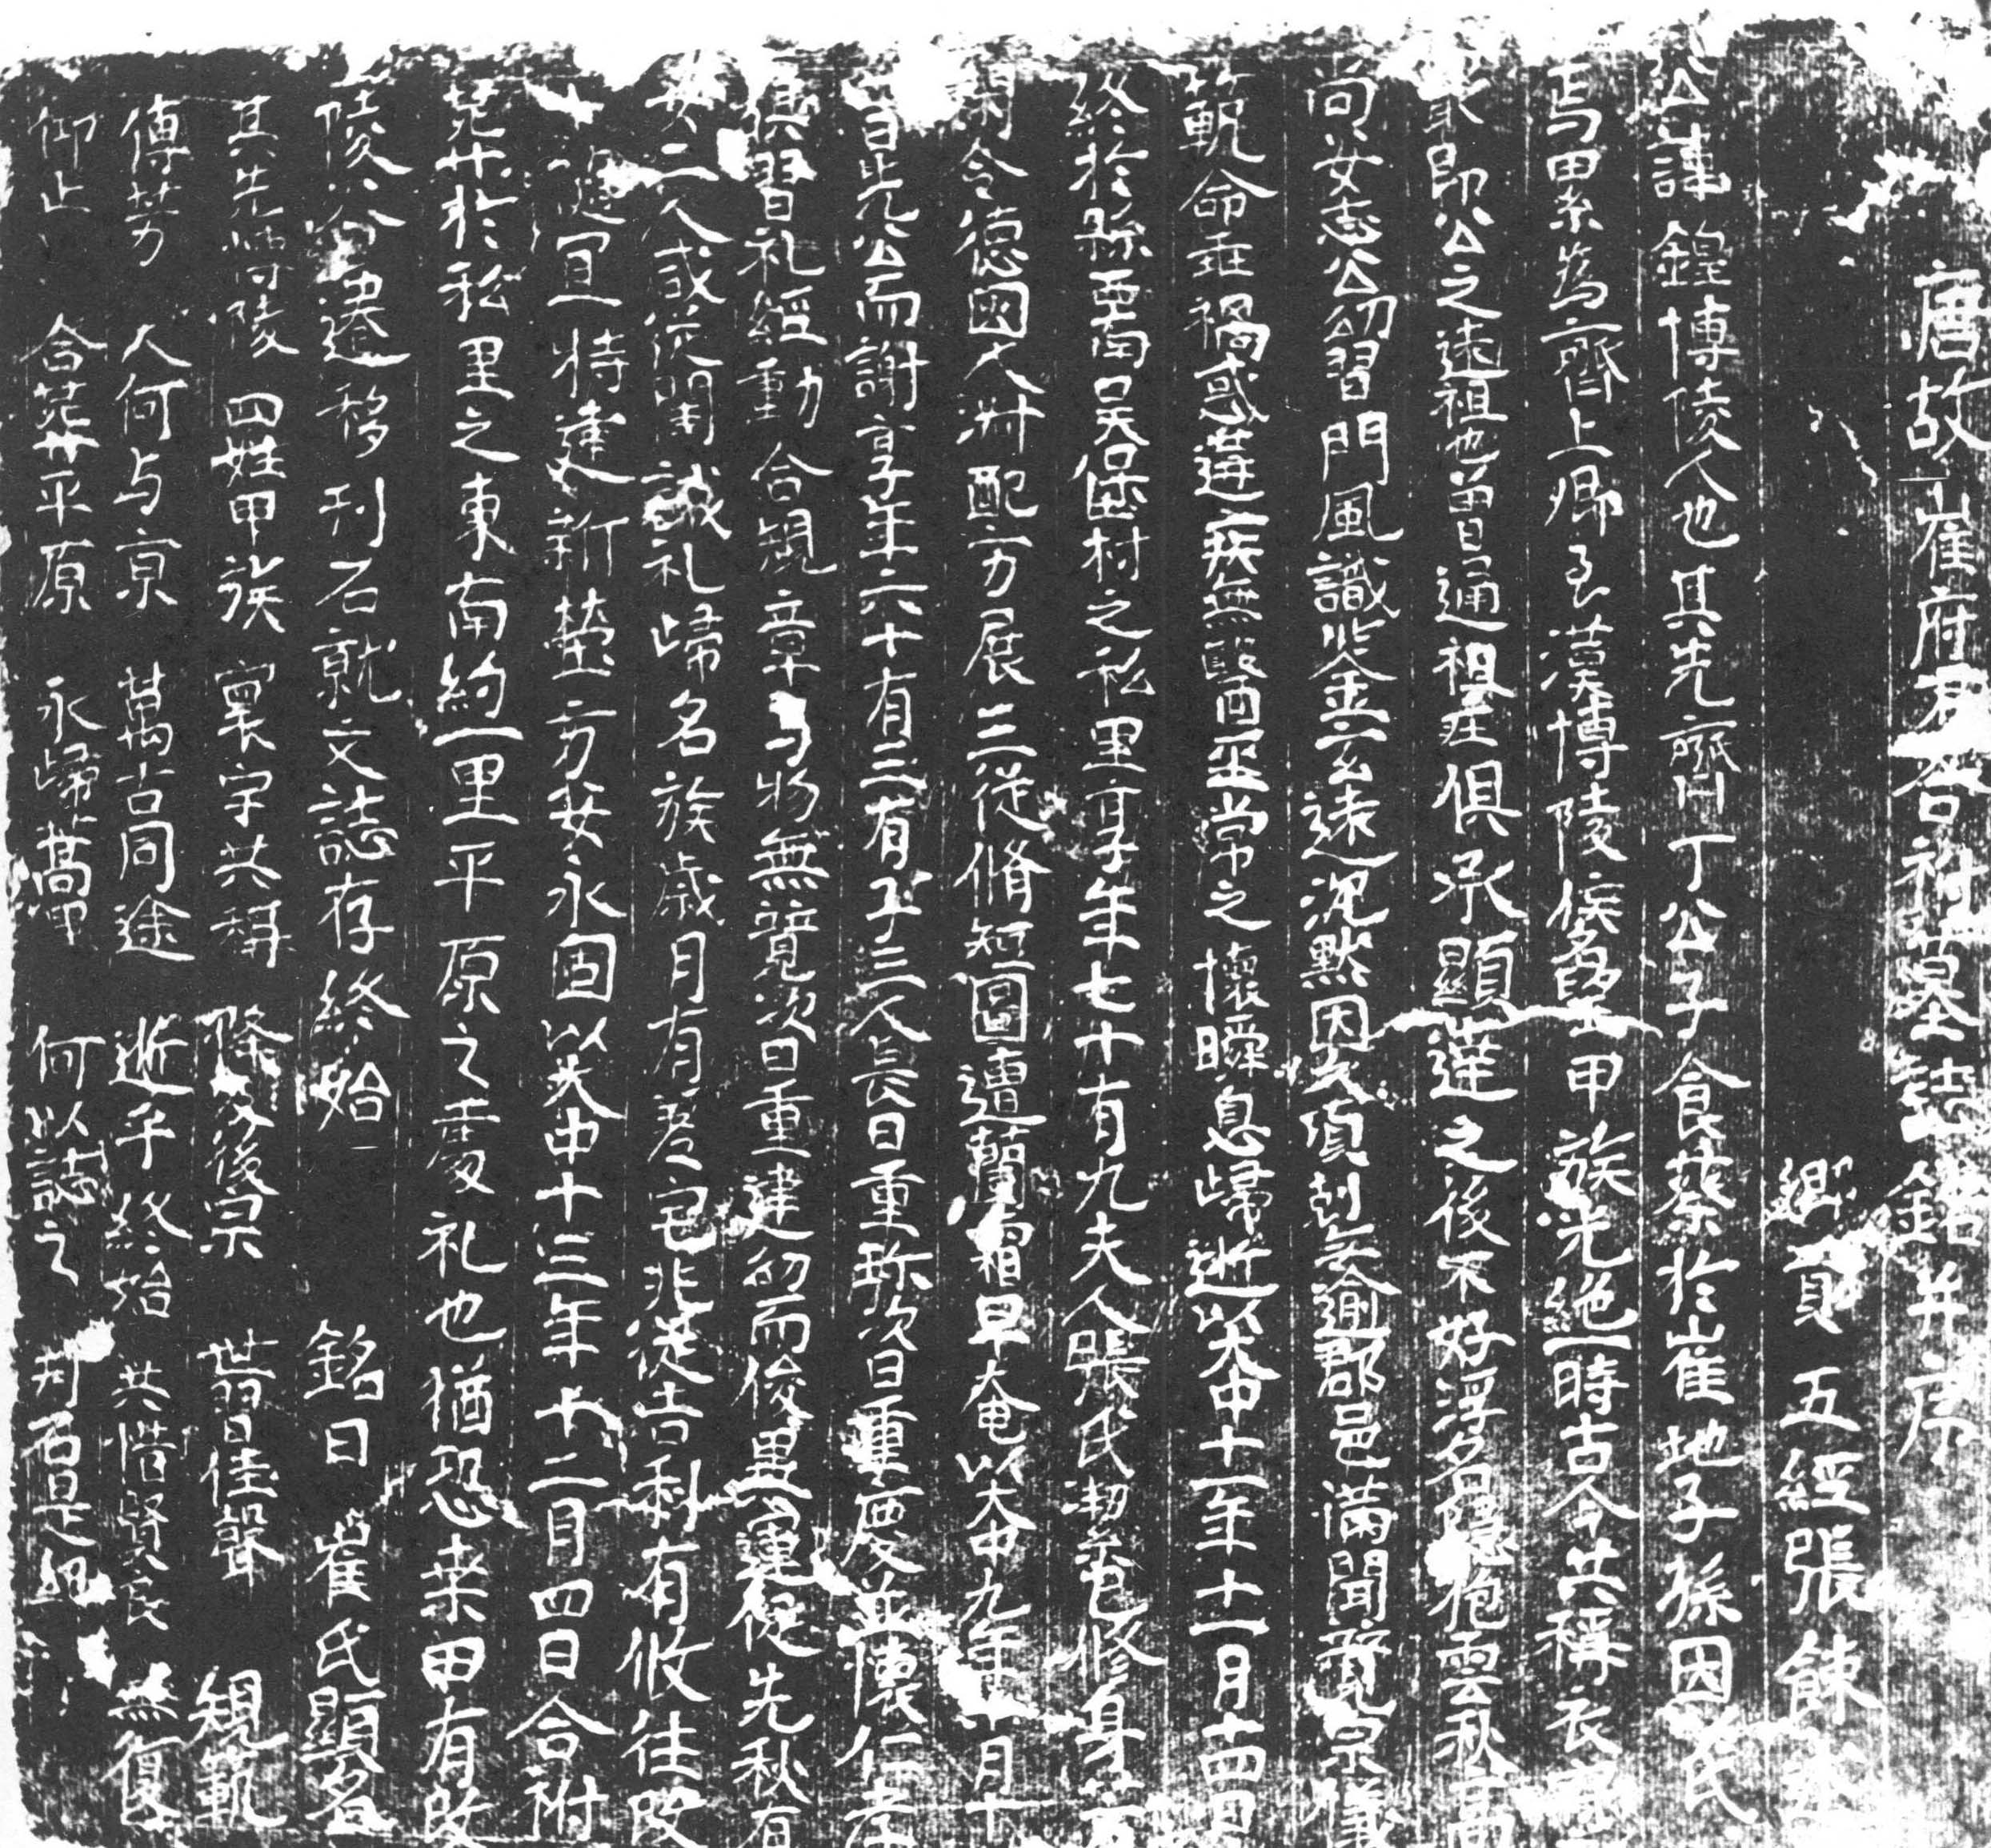 唐故崔府君合祔墓誌銘并序
鄉貢五經張餗
公諱鍠博陵人也其先齊丁公子食菜於崔地子孫因氏
焉甲系為齊上卿至漢博陵侯望甲族光絕一時古今共稱衣
即公之遠祖也曾通祖庄俱承顯達之後不好浮名隱抱雲秋高
尚女志公幼習門風識坐金玄遠沉默因久傾刻矣逾郡邑滿聞竟宗儀
範命垂禍惑遘疾無醫巫常之懷瞬息歸逝以大中十一年十一月十四日
終於縣西南吳保村之私里享年七十有九夫人張氏溫修身
閑令德因人淑配方展三從脩短圖遭蘭霜早奄以大中九年十月十
日先公而謝享年六十有三有子三人長曰重珎次曰重慶並懷仁孝
俱習礼經動合規章与物無競次曰重建幼而俊異遷從先秋有
女二人或從閨誡礼歸名族歲月有卷宅兆從吉利有攸往改
宜特建新塋方安永固以大中十三年十二月四日合祔
窆於私里之東南約一里平原之慶礼也猶恐桒田有改
陵谷遷移刊石就文誌存終始 銘曰 崔氏顯名
其先博陵 四姓甲族 寰宇共稱 降及後宗 世習佳聲 規範
傳芳 人何与京 萬古同途 逝乎終始 共惜賢良 無復
仰止 合葬平原 永歸蒿里 何以誌之 刋石是紀